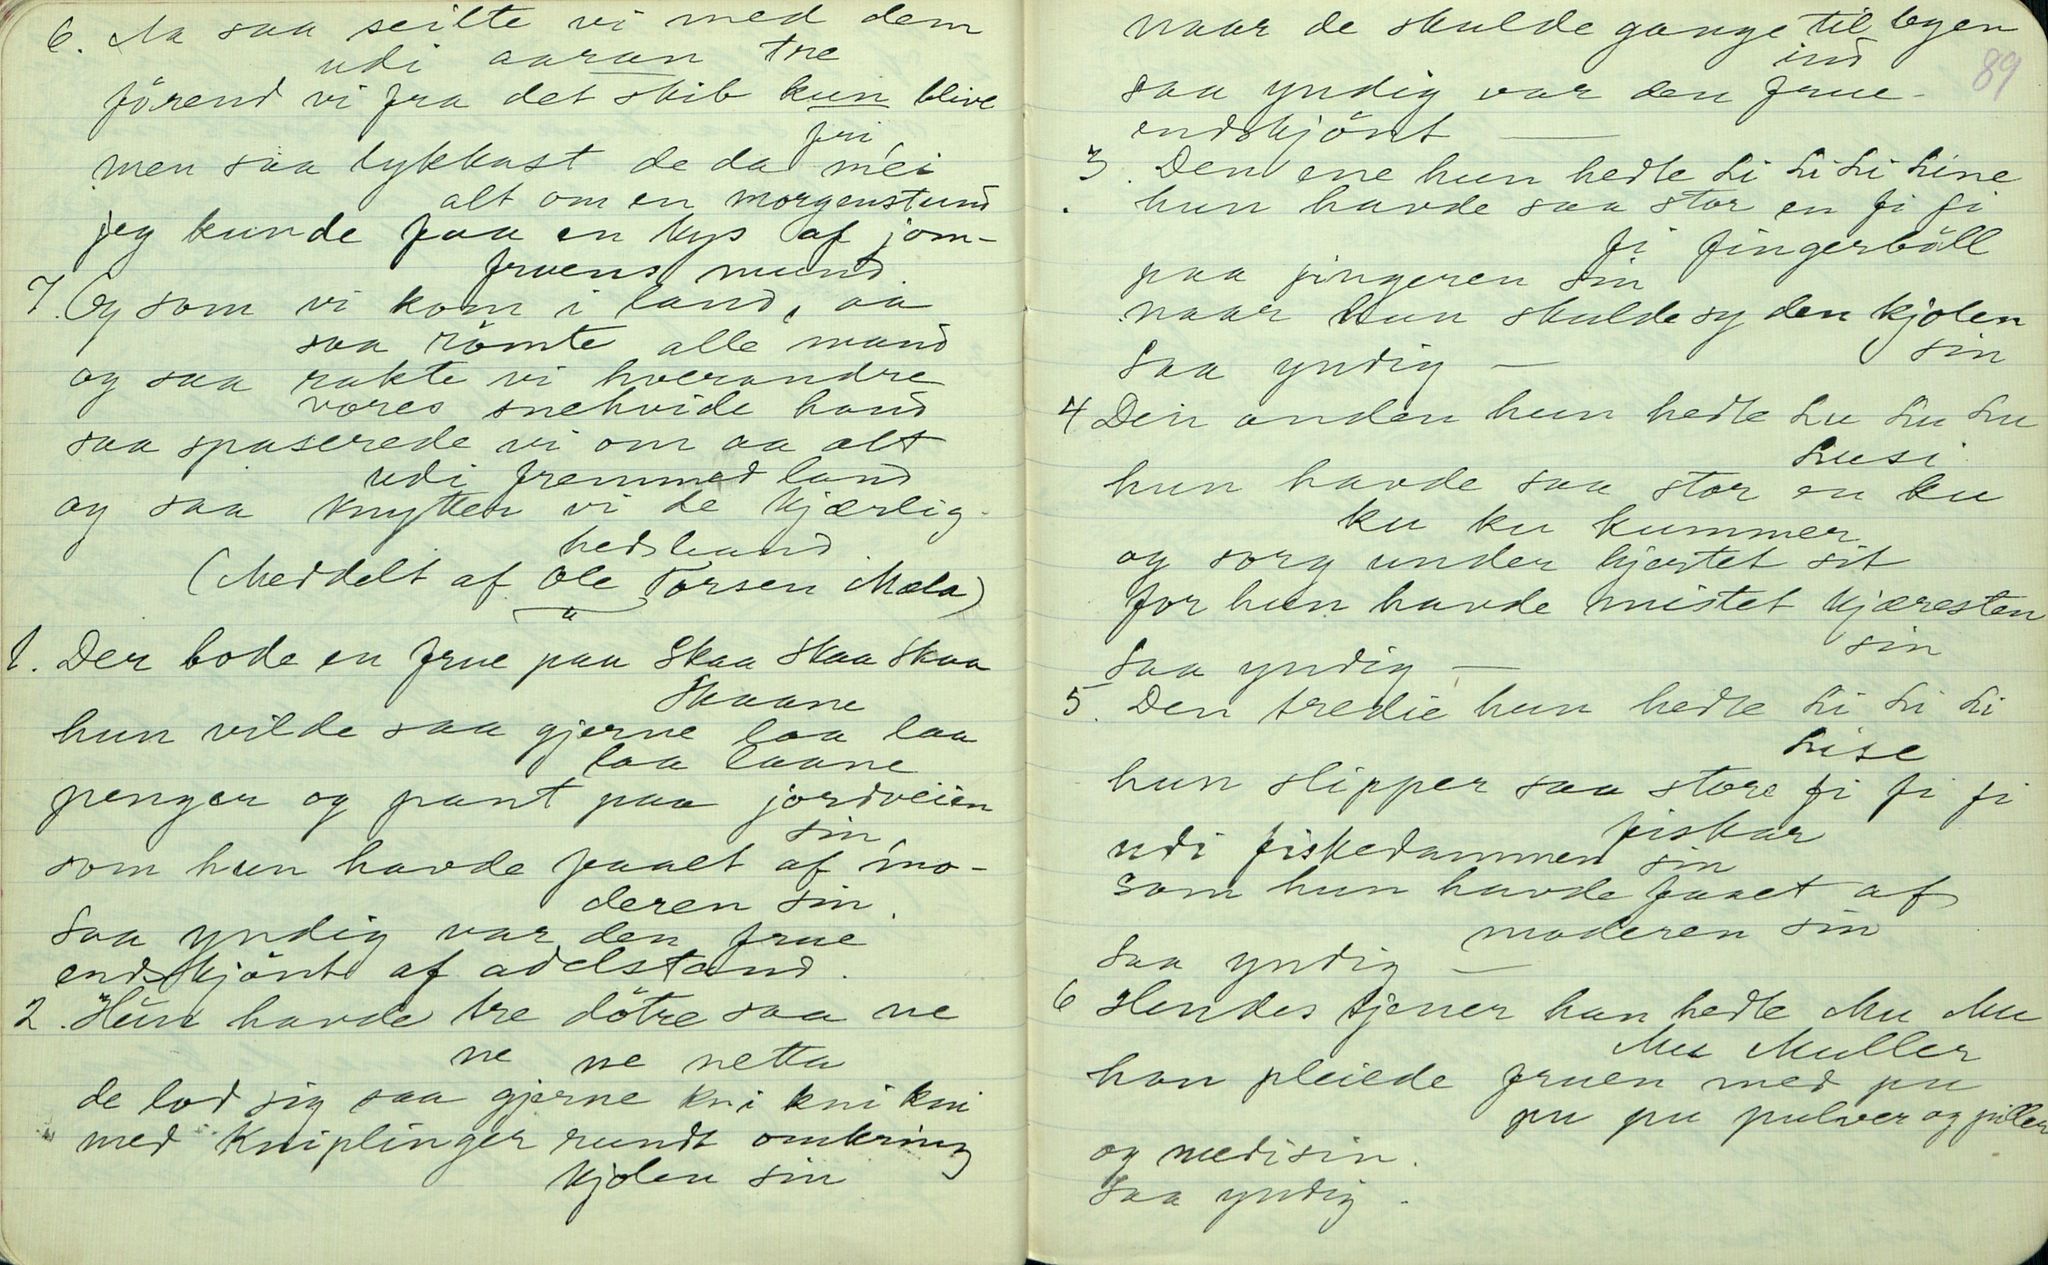 6. Na saa seilte vi med dem
udi aaran tre
förend vi fra det skib kun blive
fri
men saa lykkast de da mei
alt om en morgenstund
jeg kunde faa en kys af jom-
fruens mund
7. Og som vi kom i land, aa
saa römte alle mand
og saa rakte vi hverandre
vores snehvide hand
saa spaserede vi om aa alt
udi fremmed land
og saa knytter vi de kjærlig-
hedsband
(Meddelt af Ole Torsen Mæla)
1. Der bode en frue paa Skaa Skaa Skaa
Skaane
hun vilde saa gjerne laa laa
laa laane
penger og pant paa jordveien
sin
som hun havde faaet af mo-
deren sin
Saa yndig var den frue
endskjönt af adelstand.
2. Hun havde tre dötre saa ne
ne ne netta
de lod sig saa gjerne kni kni kni
med kniplinger rundt omkring
kjolen sin
naar de skulde gange til byen
ind
89
saa yndig var den frue-
endskjönt —
3. Den ene hun hedte Li Li Li Line
hun havde saa stor en fi fi
fi fingerböll
paa fingeren sin
naar hun skulde sy den kjolen
sin
Saa yndig —
4 Den anden hun hedte Lu Lu Lu
Lusi
hun havde saa stor en ku
ku ku kummer
og sorg under hjertet sit
for hun havde mistet kjæresten
sin
Saa yndig —
5. Den tredie hun hedte Li Li Li
Lise
hun slipper saa store fi fi fi
fiskar
udi fiskedammen sin
som hun havde faaet af
moderen sin
Saa yndig —
6 Hendes tjener han hedte Mu Mu
Mu Muller
han pleiede fruen med pu
pu pu pulver og piller
og medisin.
Saa yndig.